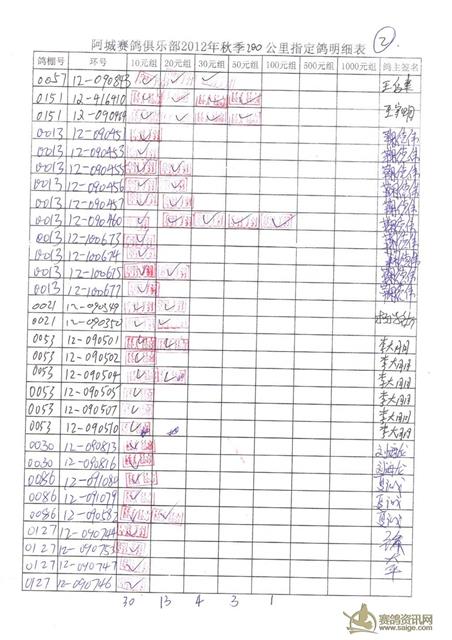 阿城赛鸽俱乐部2012年秋季200公里指定鸽明细表
②
鸽棚号 环号 10元组 20元组 30元组 50元组 100元组 500元组 1000元组 鸽主签名
0057 12-090843
0151 12-416910
0151 12-090984
0013 12-090451
0013 12-090453
0013 12-090455
0013 12-090456
0013 12-090457
0013 12-090460
0013 12-100673
0013 12-100674
0013 12-100675
0013 12-100677
0021 12-090349
0021 12-090350
0053 12-090501 李大月
0053 12-090502 李大月
0053 12-090504 李大月
0053 12-090505 李大月
0053 12-090507 李大月
0053 12-090510 李大月
0030 12-090813
0030 12-090816
0086 12-091080
0086 12-091079
0086 12-090582
0127 12-090744
0127 12-090753
0127 12-090747
0127 12-090746
30 13 4 3 1
赛鸽资讯网
www.saige.com